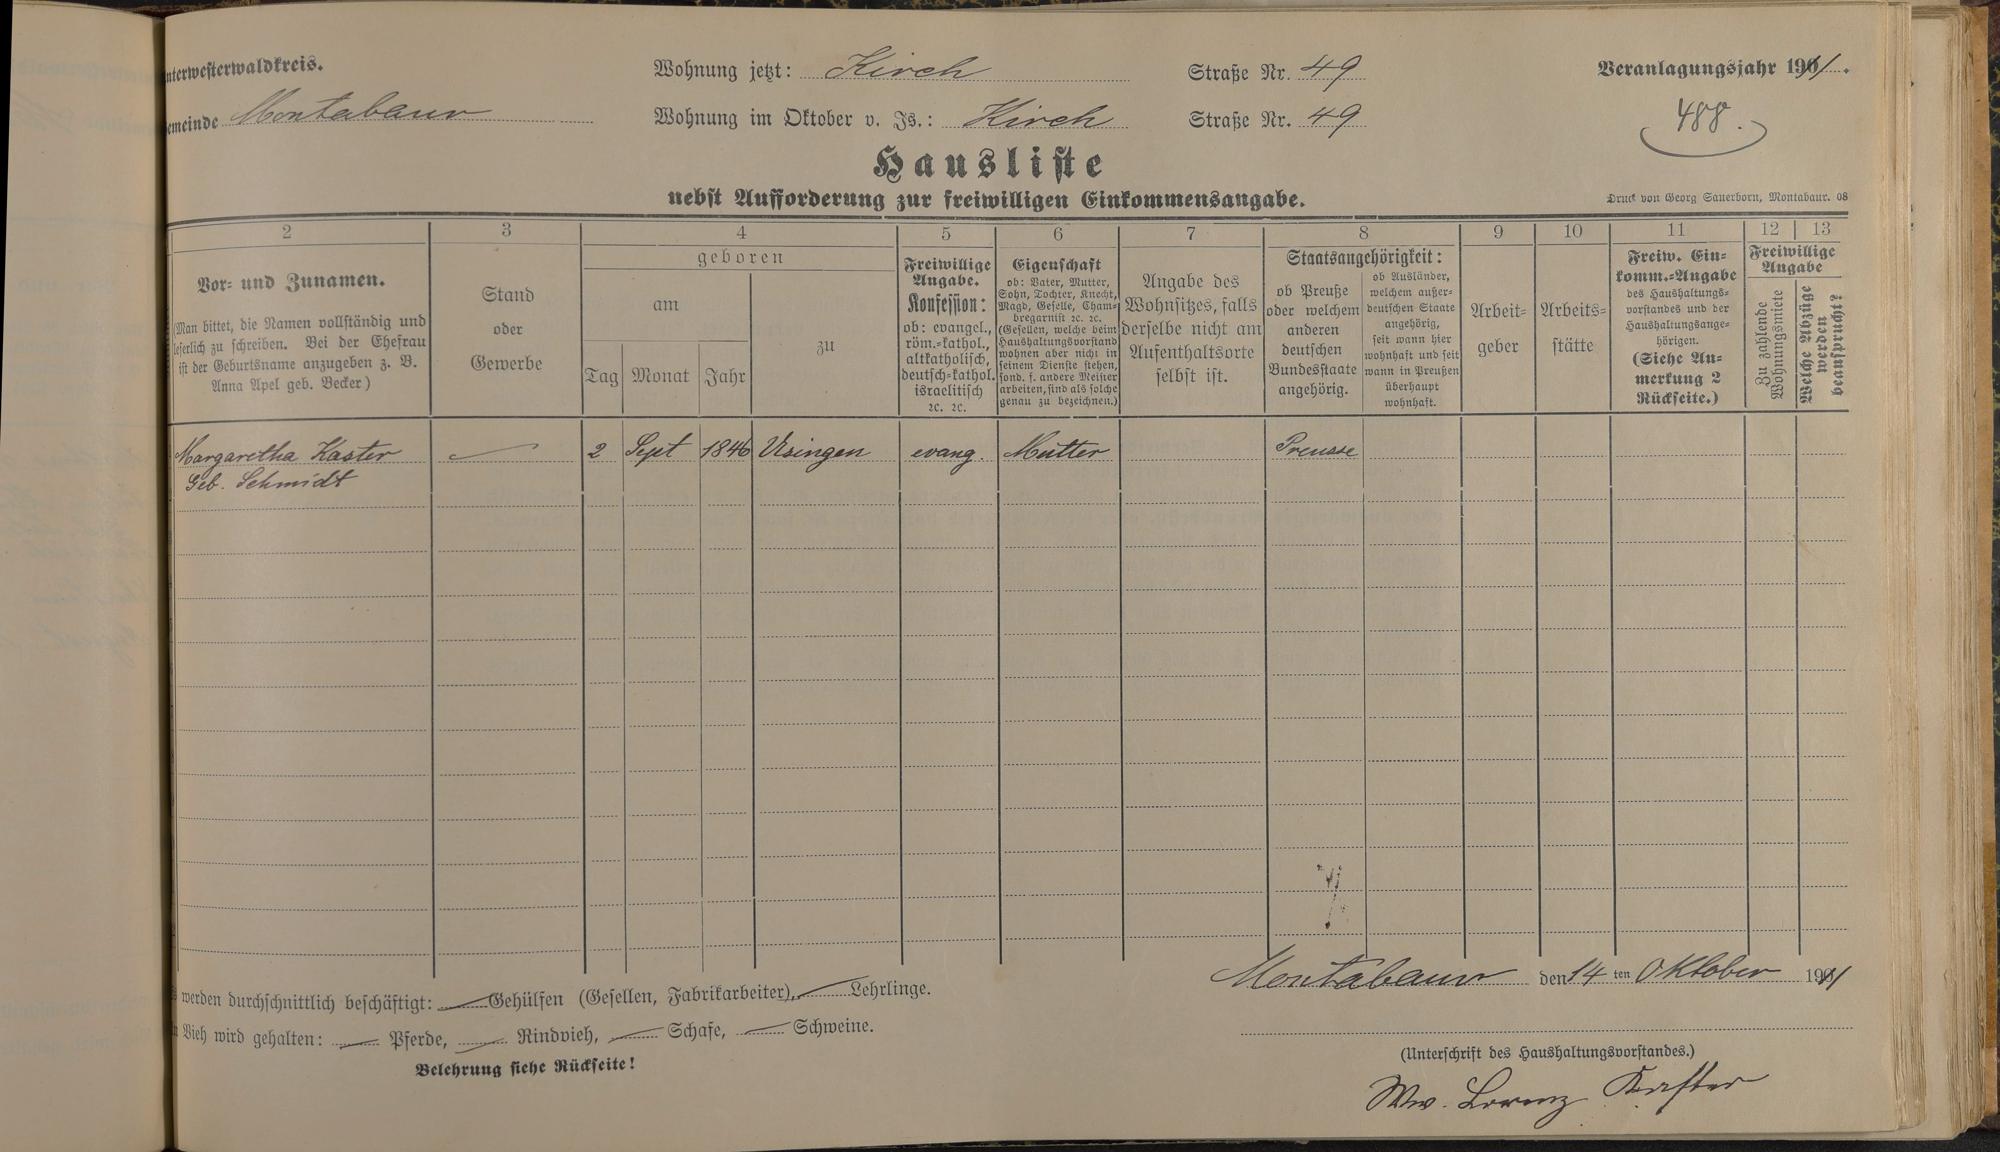 nterwesterwaldkreis.
Wohnung jetzt: Kirch Straße Nr. 49
Veranlagungsjahr 1911.
emeinde Montabaur
Wohnung im Oktober v. Js.: Kirch Straße Nr. 49
488.
Hausliste
nebst Aufforderung zur freiwilligen Einkommensangabe.
Druck von Georg Sauerborn, Montabaur. 08
2 3 4 5 6 7 8 9 10 11 12 13
Vor- und Zunamen.
(Man bittet, die Namen vollständig und
leserlich zu schreiben. Bei der Ehefrau
ist der Geburtsname anzugeben z. B.
Anna Apel geb. Becker)
Stand
oder
Gewerbe
geboren
am
Tag Monat Jahr
zu
Freiwillige
Angabe.
Konfession:
ob: evangel.,
röm.-kathol.,
altkatholisch,
deutsch-kathol.
israelitisch
ꝛc. ꝛc.
Eigenschaft
ob: Vater, Mutter,
Sohn, Tochter, Knecht,
Magd, Geselle, Cham-
bregarnist ꝛc. ꝛc.
(Gesellen, welche beim
Haushaltungsvorstand
wohnen aber nicht in
seinem Dienste stehen,
sond. f. andere Meister
arbeiten, sind als solche
genau zu bezeichnen.)
Angabe des
Wohnsitzes, falls
derselbe nicht am
Aufenthaltsorte
selbst ist.
Staatsangehörigkeit:
ob Preuße
oder welchem
anderen
deutschen
Bundesstaate
angehörig.
ob Ausländer,
welchem außer-
deutschen Staate
angehörig,
seit wann hier
wohnhaft und seit
wann in Preußen
überhaupt
wohnhaft.
Arbeit-
geber
Arbeits-
stätte
Freiw. Ein-
komm.-Angabe
des Haushaltungs-
vorstandes und der
Haushaltungsange-
hörigen.
(Siehe An-
merkung 2
Rückseite.)
Freiwillige
Angabe
Zu zahlende
Wohnungsmiete
Welche Abzüge
werden
beansprucht?
Margaretha Kaster 2 Sept 1846 Usingen evang. Mutter Preusse
Geb. Schmidt
Montabaur den 14 ten Oktober 1911
s werden durchschnittlich beschäftigt: Gehülfen (Gesellen, Fabrikarbeiter), Lehrlinge.
n Vieh wird gehalten: Pferde, Rindvieh, Schafe, Schweine.
Belehrung siehe Rückseite!
(Unterschrift des Haushaltungsvorstandes.)
Ww. Lorenz Kaster